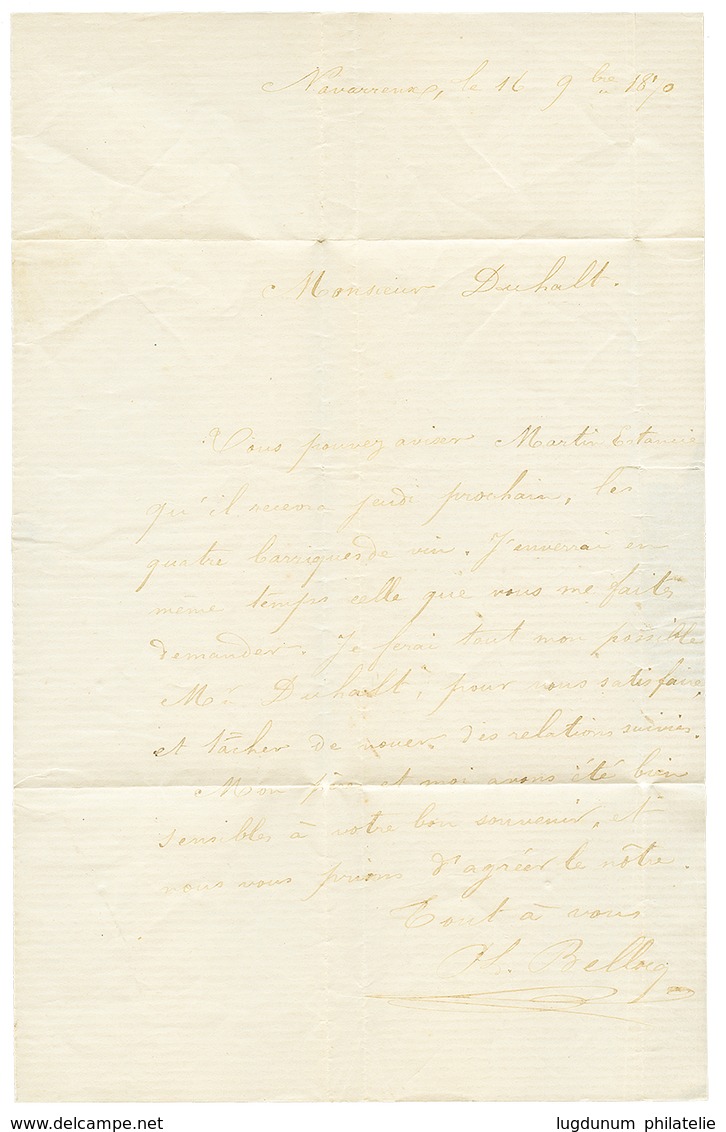 Navarrenx, le 16 9bre 1870
Monsieur Duhalt.
Vous pouvez aviser Martin Estancié
qu'il recevra jeudi prochain, les
quatre barriques de vin. J'enverrai en
même temps celle que vous me faites
demander. Je ferai tout mon possible
Mr Duhalt, pour vous satisfaire,
et tâcher de nouer des relations suivies.
Mon père et moi avons été bien
sensibles à votre bon souvenir, et
nous vous prions d'agréer le nôtre.
Tout à vous
H. Bellocq
delcampe.net
lugdunum philatelie